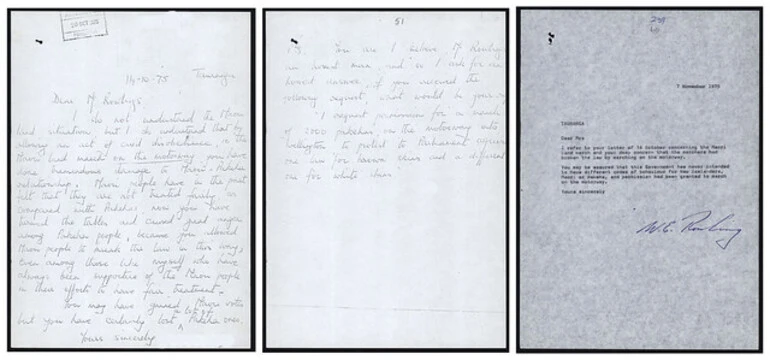 14-10-75 Tauranga
Dear Mr Rowling,
I do not understand the Maori
land situation but I do understand that by
allowing an act of civil disobedience, ie the
Maori land march on the motorway, you have
done tremendous damage to Maori-Pakeha
relationships. Maori people have in the past
felt that they are not treated fairly as
compared with Pakehas now you have
turned the tables and caused great anger
among Pakeha people, because you allowed
Maori people to break the law in this way,
even among those like myself who have
always been supportive of the Maori people
in their efforts to have fair treatment.
You may have gained Maori votes
but you have certainly lost a lot of Pakeha ones.
Yours sincerely
51
P.S. You are I believe Mr Rowling
an honest man, and so I ask for an
honest answer, if you received the
following request, what would be your
"I request permission for a march
of 1000 pakehas, on the motorway into
Wellington to protest to Parliament against
one law for brown skins and a different
one for white skins.
7 November 1975
TAURANGA
Dear Mrs
I refer to your letter of 14 October concerning the Maori
land march and your deep concern that the marchers had
broken the law by marching on the motorway.
You may be assured that this Government has never intended
to have different codes of behaviour for New Zealanders,
Maori or Pakeha, and permission had been granted to march
on the motorway.
Yours sincerely
W.E. Rowling